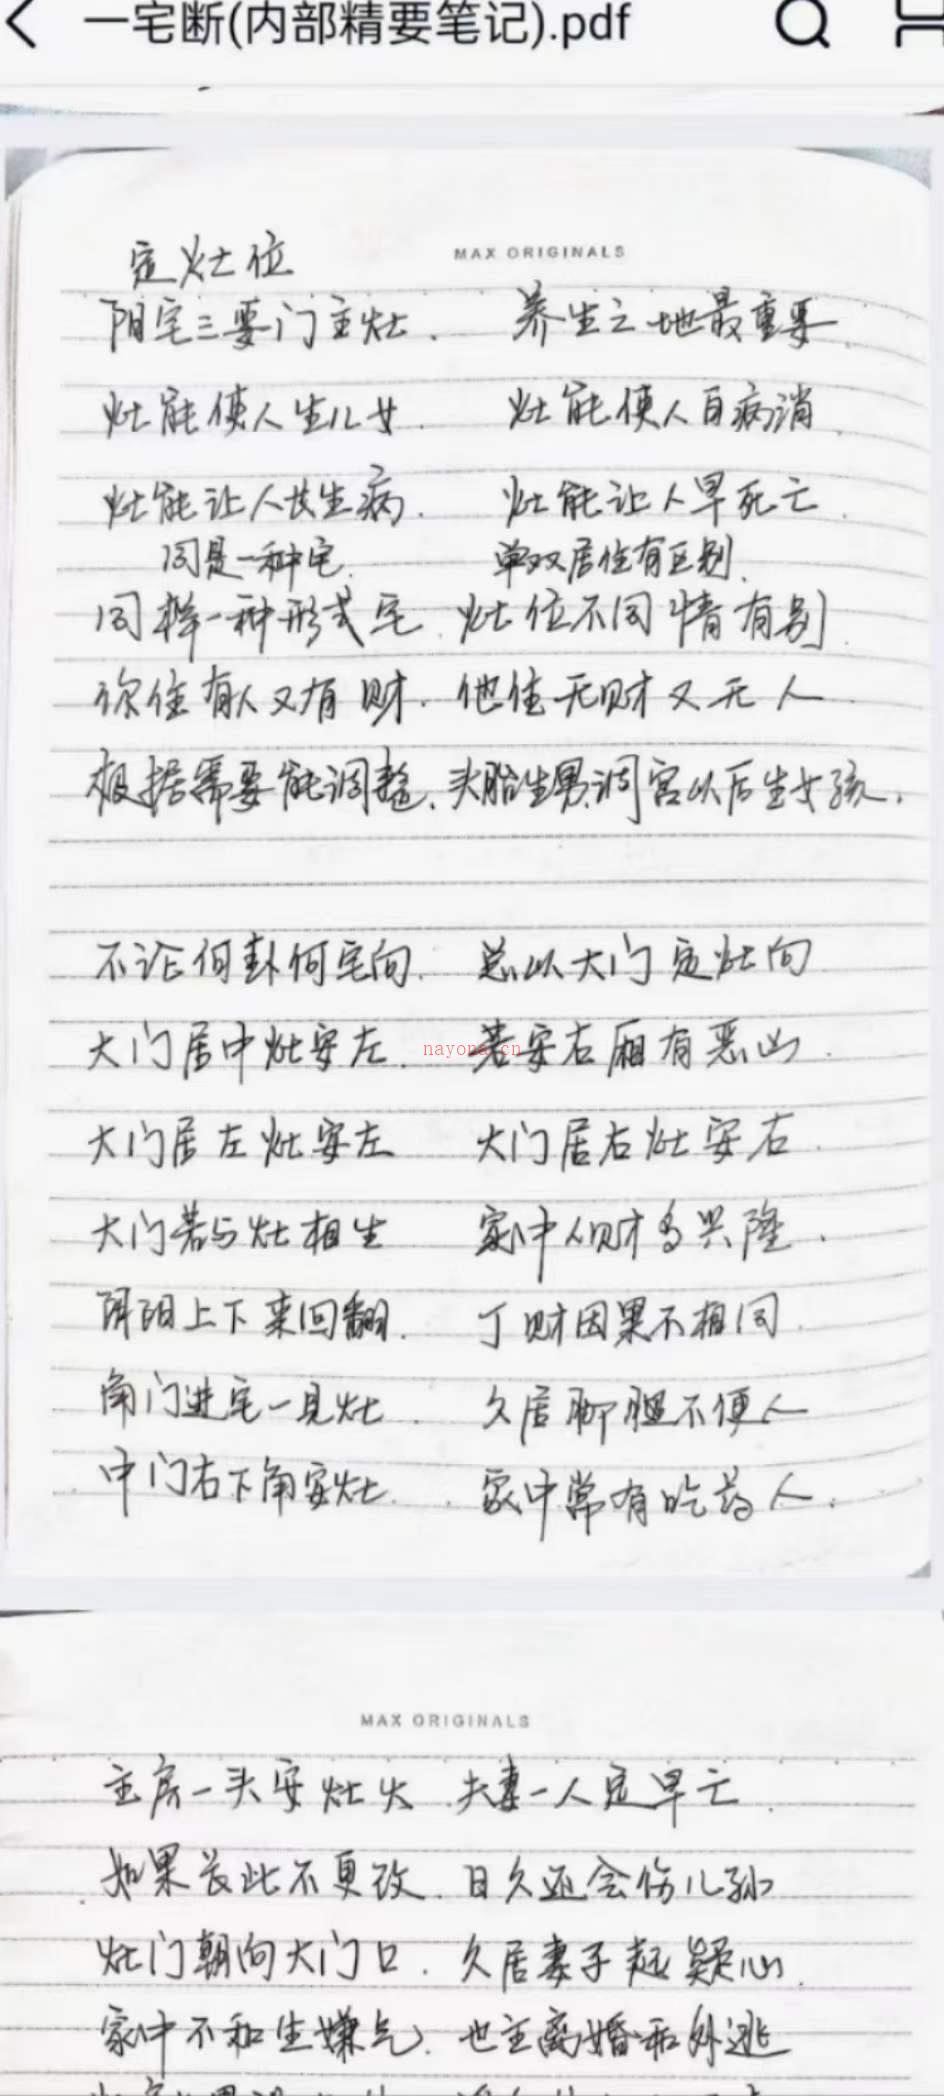 一宅断(内部精要笔记).pdf
MAX ORIGINALS
定灶位
阳宅三要门主灶. 养生之地最重要
灶能使人生儿女. 灶能使人百病消
灶能让人长生病. 灶能让人早死亡.
同是一种宅. 单双居住有区别.
同样一种形式宅. 灶位不同情有别.
你住有人又有财. 他住无财又无人
根据需要能调整. 头胎生男调宫以后生女孩.
不论何卦何宅向. 总以大门定灶向
大门居中灶安左. 若安右厢有恶凶.
nayona.cn
大门居左灶安左 大门居右灶安右.
大门若与灶相生 家中人财多兴隆.
阴阳上下来回翻. 丁财因果不相同.
角门进宅一见灶. 久居脚腿不便人
中门右下角安灶. 家中常有吃药人.
MAX ORIGINALS
主房一头安灶火. 夫妻一人定早亡.
如果长此不更改. 日久还会伤儿孙
灶门朝向大门口. 久居妻子起疑心.
家中不和生嫌气. 也主离婚和外逃